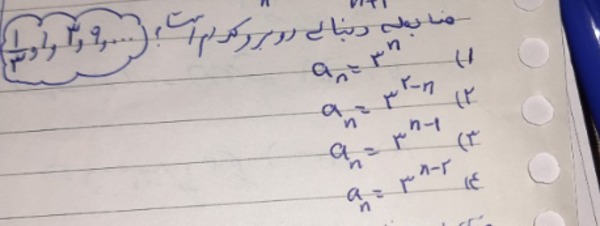 ضابطه دنباله روبرو کدام است؟ 1/۳, ۱, ۳, ۹, ...
۱) aₙ = ۳ⁿ
۲) aₙ = ۳^۲-n
۳) aₙ = ۳^n-۱
۴) aₙ = ۳^n-۲